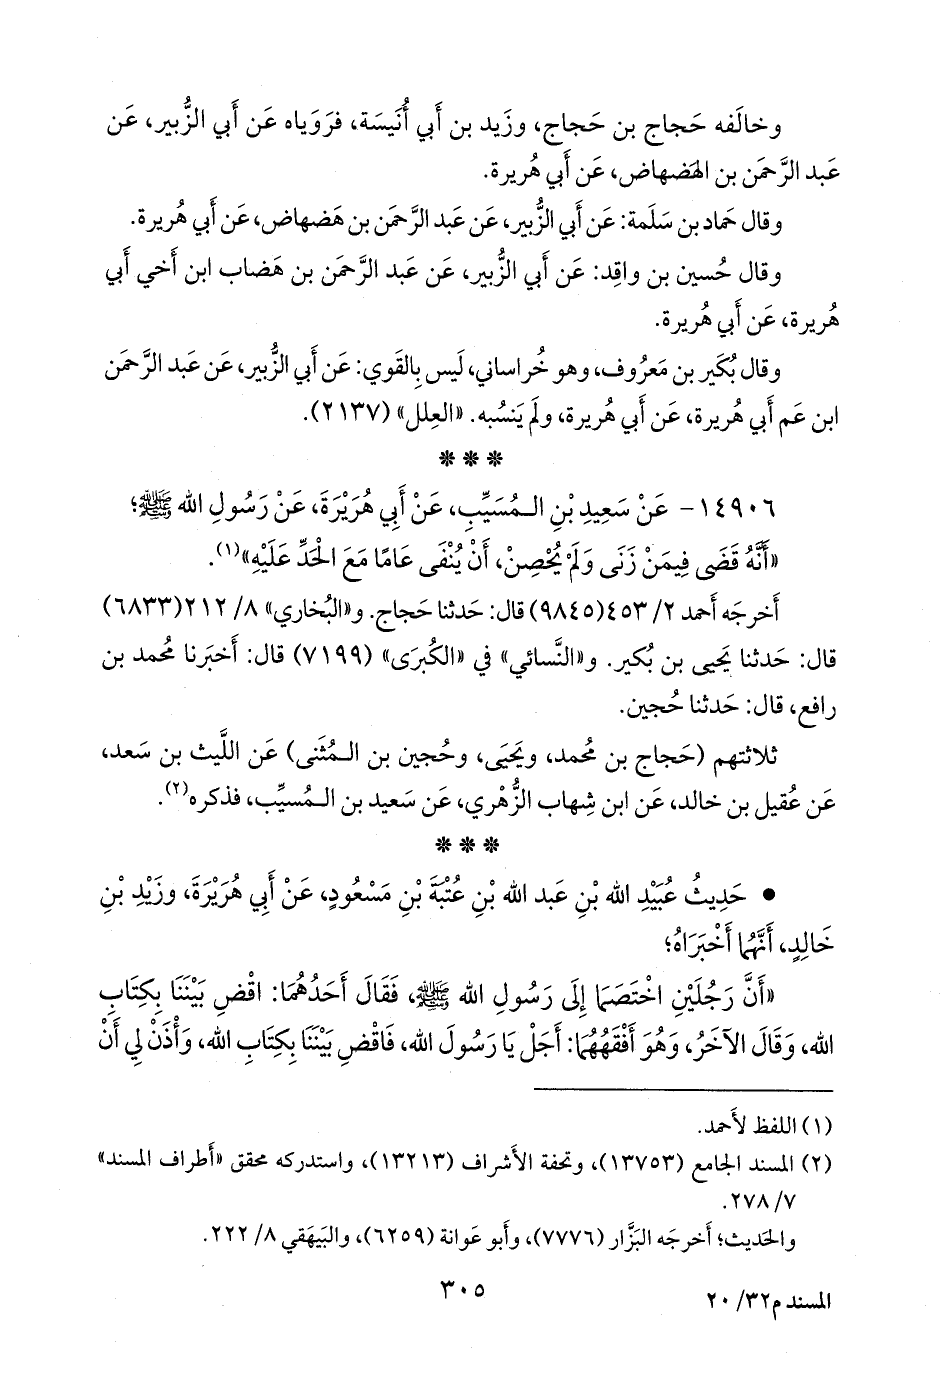 وخالَفه حَجاج بن حَجاج، وزَيد بن أَبي أُنَيسَة، فرَوَياه عَن أَبي الزُّبير، عَن
عَبد الرَّحمَن بن الهَضهاض، عَن أَبي هُريرة.
وقال حَماد بن سَلَمة: عَن أَبي الزُّبير، عَن عَبد الرَّحمَن بن هَضهاض، عَن أَبي هُريرة.
وقال حُسين بن واقِد: عَن أَبي الزُّبير، عَن عَبد الرَّحمَن بن هَضاب ابن أَخي أَبي
هُريرة، عَن أَبي هُريرة.
وقال بُكَير بن مَعرُوف، وهو خُراساني، لَيس بِالقَوي: عَن أَبي الزُّبير، عَن عَبد الرَّحمَن
ابن عَم أَبي هُريرة، عَن أَبي هُريرة، ولَم يَنسُبه. «العِلل» (٢١٣٧).
* * *
١٤٩٠٦- عَنْ سَعِيدِ بْنِ الـمُسَيِّبِ، عَنْ أَبِي هُرَيْرَةَ، عَنْ رَسُولِ الله ﷺ؛
«أَنَّهُ قَضَى فِيمَنْ زَنَى وَلَمْ يُحْصِنْ، أَنْ يُنْفَى عَامًا مَعَ الْحَدِّ عَلَيْهِ»(١).
أَخرجَه أَحمد ٢/ ٤٥٣(٩٨٤٥) قال: حَدثنا حَجاج. و«البُخاري» ٨/ ٢١٢(٦٨٣٣)
قال: حَدثنا يَحيى بن بُكير. و«النَّسائي» في «الكُبرَى» (٧١٩٩) قال: أَخبَرنا مُحمد بن
رافع، قال: حَدثنا حُجين.
ثلاثتهم (حَجاج بن مُحمد، ويَحيَى، وحُجين بن الـمُثَنى) عَن اللَّيث بن سَعد،
عَن عُقيل بن خالد، عَن ابن شِهاب الزُّهْري، عَن سَعيد بن الـمُسيِّب، فذكره(٢).
* * *
• حَدِيثُ عُبَيْدِ الله بْنِ عَبد الله بْنِ عُتْبَةَ بْنِ مَسْعُودٍ، عَنْ أَبِي هُرَيْرَةَ، وَزَيْدِ بْنِ
خَالِدٍ، أَنَّهُمَا أَخْبَرَاهُ؛
«أَنَّ رَجُلَيْنِ اخْتَصَمَا إِلَى رَسُولِ الله ﷺ، فَقَالَ أَحَدُهُمَا: اقْضِ بَيْنَنَا بِكِتَابِ
الله، وَقَالَ الآخَرُ، وَهُوَ أَفْقَهُهُمَا: أَجَلْ يَا رَسُولَ الله، فَاقْضِ بَيْنَنَا بِكِتَابِ الله، وَأْذَنْ لِي أَنْ
(١) اللفظ لأَحمد.
(٢) المسند الجامع (١٣٧٥٣)، وتحفة الأشراف (١٣٢١٣)، واستدركه محقق «أَطراف المسند»
٧/ ٢٧٨.
والحَديث؛ أَخرجَه البَزَّار (٧٧٧٦)، وأَبو عَوانة (٦٢٥٩)، والبَيهَقي ٨/ ٢٢٢.
٣٠٥
المسند م٣٢/ ٢٠